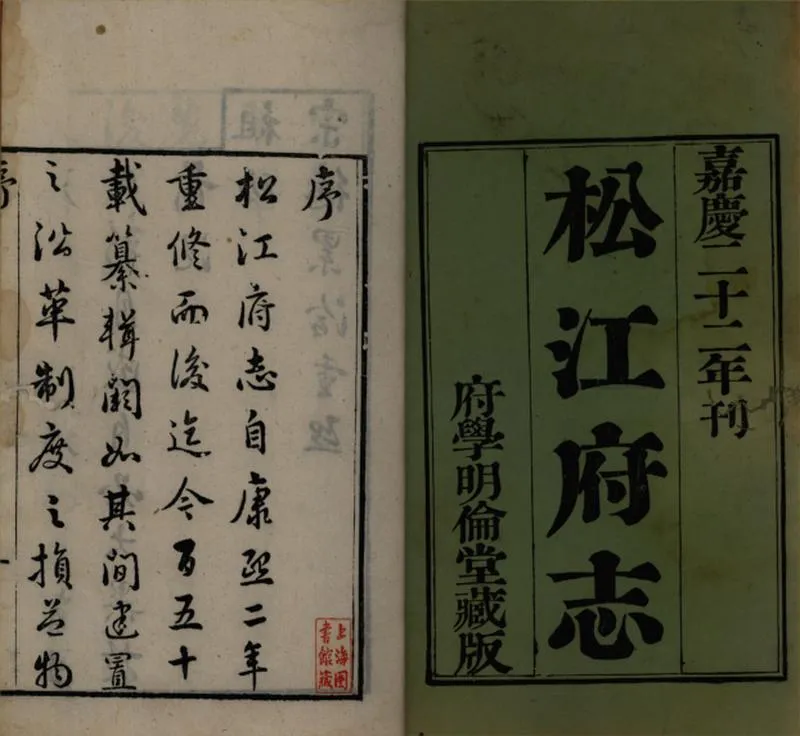 嘉慶二十二年刊
松江府志
府學明倫堂藏版
序
松江府志自康熙二年
重修而後迄今百五十
載纂輯闕如其間建置
之沿革制度之損益物
上海圖
書館藏